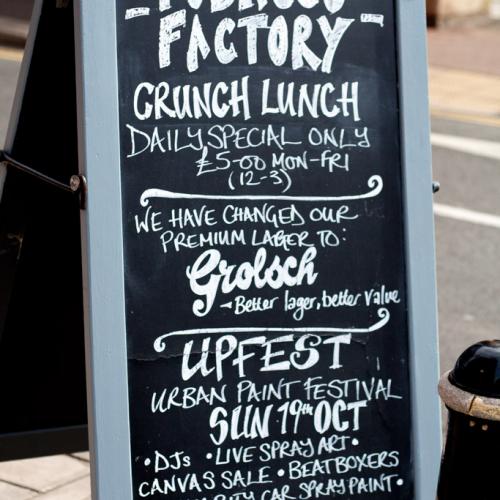 TOBACCO
FACTORY
CRUNCH LUNCH
DAILY SPECIAL ONLY
£5-00 MON-FRI
(12-3)
WE HAVE CHANGED OUR
PREMIUM LAGER TO:
Grolsch
- Better lager, better value
UPFEST
URBAN PAINT FESTIVAL
SUN 19th OCT
• DJs • LIVE SPRAY ART •
CANVAS SALE • BEATBOXERS
CAR SPRAY PAINT •